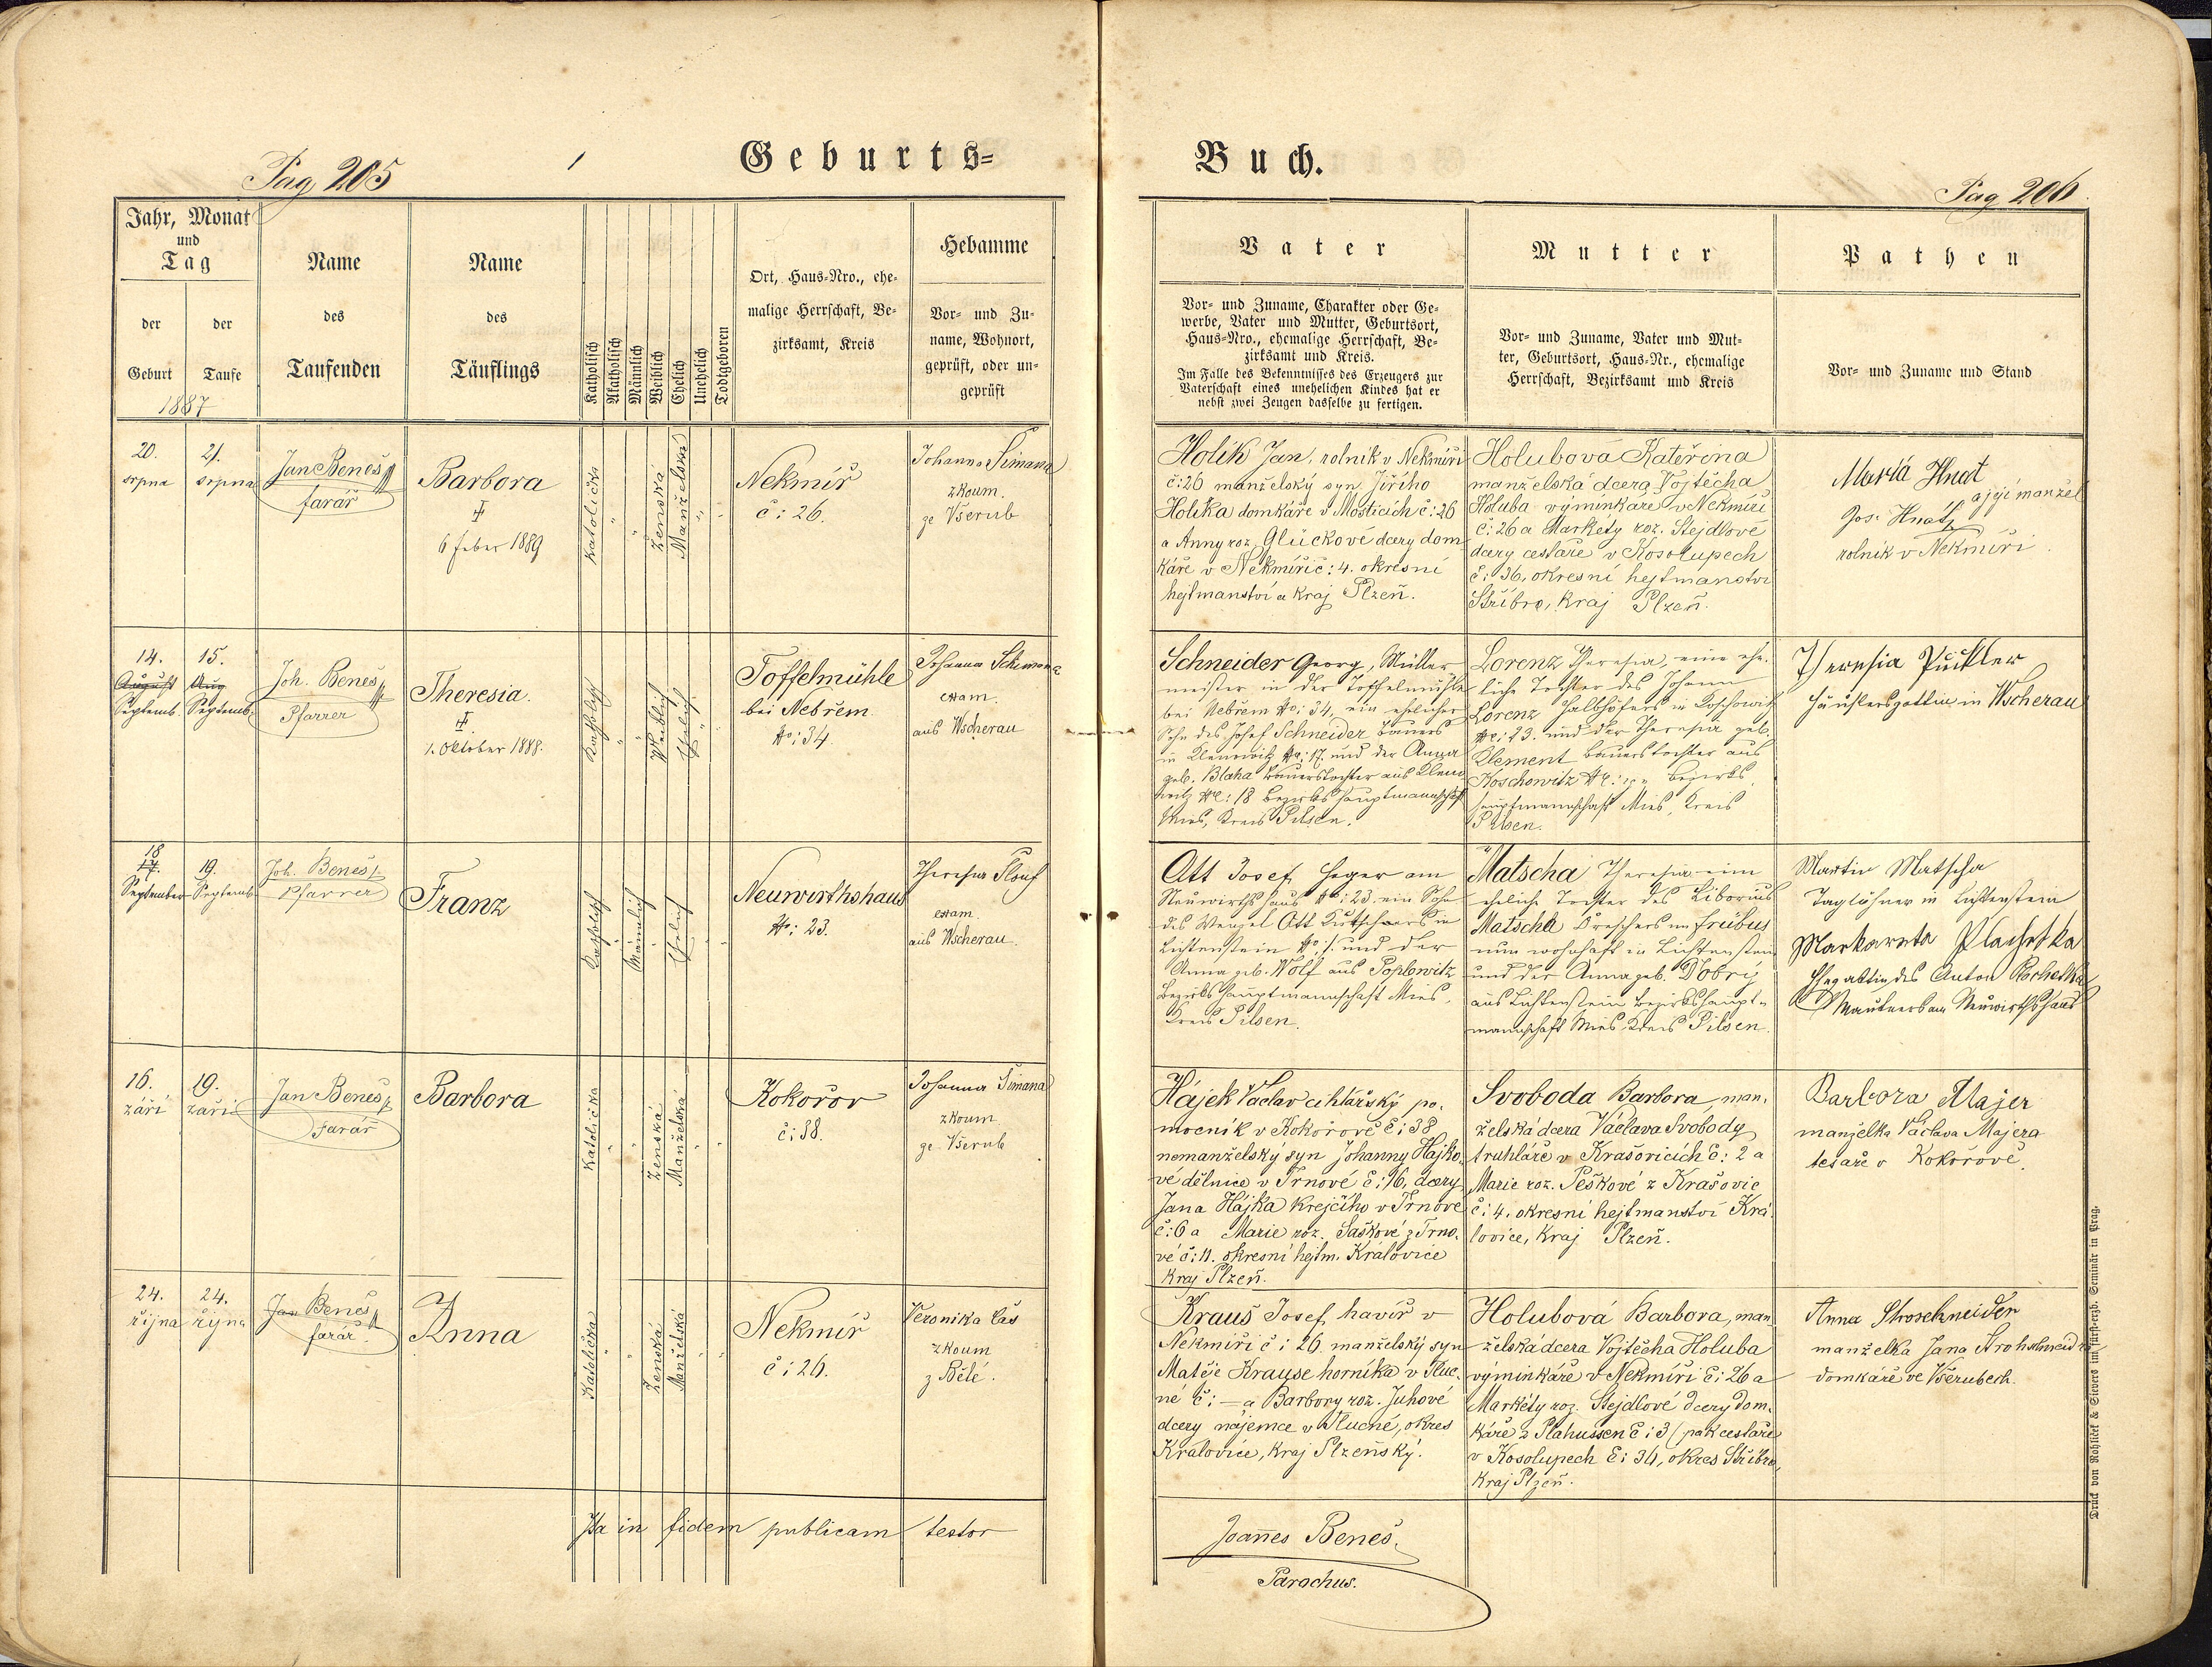 Pag 205
Geburts=
Buch.
Pag 206.
Jahr, Monat
und
Tag
der
Geburt
der
Taufe
1887
Name
des
Taufenden
Name
des
Täuflings
Katholisch
Akatholisch
Männlich
Weiblich
Ehelich
Unehelich
Todtgeboren
Ort, Haus=Nro., ehe=
malige Herrschaft, Be=
zirksamt, Kreis
Hebamme
Vor= und Zu=
name, Wohnort,
geprüft, oder un=
geprüft
Vater
Vor= und Zuname, Charakter oder Ge=
werbe, Vater und Mutter, Geburtsort,
Haus=Nro., ehemalige Herrschaft, Be=
zirksamt und Kreis.
Im Falle des Bekenntnisses des Erzeugers zur
Vaterschaft eines unehelichen Kindes hat er
nebst zwei Zeugen dasselbe zu fertigen.
Mutter
Vor= und Zuname, Vater und Mut=
ter, Geburtsort, Haus=Nr., ehemalige
Herrschaft, Bezirksamt und Kreis
Pathen
Vor= und Zuname und Stand
20.
srpna
21.
srpna
Jan Beneš
farář
Barbora
6 feber 1889
Katolička
Ženská
Manželská
Nekmíř
č: 26.
Johanna Šimana
zkoum.
ze Všerub
Holík Jan, rolník v Nekmíři
č: 26 manželský syn Jiřího
Holíka domkáře v Mosticích č: 26
a Anny roz. Glückové dcery dom
káře v Nekmíři č: 4. okresní
hejtmanství a kraj Plzeň.
Holubova Kateřina
manželská dcera Vojtěcha
Holuba výminkáře v Nekmíři
č: 26 a Markéty roz. Stejdlové
dcery cestáře v Kosolupech
č: 36, okresní hejtmanství
Stříbro, kraj Plzeň.
Maria Hnat
a její manžel
Jos. Hnát
rolník v Nekmíři.
14.
August
Septemb.
15.
Aug
Septemb.
Joh. Beneš
Pfarrer
Theresia.
1. Oktober 1888.
Katholisch
Weiblich
Ehelich
Toffelmühle
bei Nebřem
No: 34.
Johanna Schimana
exam.
aus Wscherau
Schneider Georg, Müller
meister in der Toffelmühle
bei Nebřem No: 34, ein ehelicher
Sohn des Josef Schneider Bauers
in No: 17. und der Anna
geb. Blaha Bauerstochter aus
No: 18 Bezirkshauptmannschaft
Mies, Kreis Pilsen.
Lorenz Theresia, eine ehe.
liche Tochter des Johann
Lorenz Halbhöfers in Koschowitz
No: 23. und der Theresia geb.
Klement Bauerstochter aus
Koschowitz No: Bezirks
hauptmannschaft Mies, Kreis
Pilsen.
Theresia Pückler
Häuslersgattin in Wscherau
18
17.
September
19.
Septemb.
Joh. Beneš
Pfarrer
Franz
Katholisch
Männlich
Ehelich
Neuwirthshaus
No: 23.
Theresia
exam.
aus Wscherau.
Ott Josef, Heger am
Neuwirthshaus No: 23. ein Sohn
des Wenzel Ott Kutschers in
Lichtenstein No: 1. und der
Anna geb. Wolf aus Poplowitz
Bezirkshauptmannschaft Mies,
Kreis Pilsen.
Matscha Theresia eine
eheliche Tochter des Liborius
Matscha Dreschers in Fribus
nun wohnhaft in Lichtenstein
und der Anna geb. Dobrý
aus Lichtenstein Bezirkshaupt=
mannschaft Mies, Kreis Pilsen.
Martin Matscha
Taglöhner in Lichtenstein
Markareta Plachetka
Ehegattin des Anton Plachetka
Mautners am Neuwirthshaus
16.
září
19.
září
Jan Beneš
Farář
Barbora
Katolička
Ženská
Manželská
Kokořov
č: 38.
Johanna Šimana
zkoum.
ze Všerub
Hájek Václav cihlářský po.
mocník v Kokořově č: 38
nemanželský syn Johanny Hájko.
vé dělnice v Trnové č: 16, dcery
Jana Hájka krejčího v Trnové
č: 6 a Marie roz. Saškové z Trno.
vé č: 11. okresní hejtm. Kralovice
kraj Plzeň.
Svoboda Barbora, man.
želská dcera Václava Svobody
truhláře v Krašovicích č: 2 a
Marie roz. Peškové z Krašovic
č: 4. okresní hejtmanství Kra
lovice, kraj Plzeň.
Barbora Majer
manželka Václava Majera
tesaře v Kokořově.
24.
října
24.
října
Jan Beneš
farář.
Anna
Katolička
Ženská
Manželská
Nekmíř
č: 26.
Veronika Čas
zkoum
z Bělé.
Kraus Josef, havíř v
Nekmíři č: 26 manželský syn
Matěje Krause horníka v Tluc.
né č: — a Barbory roz. Juhové
dcery nájemce v Tlucné, okres
Kralovice, kraj Plzeňský.
Holubová Barbora, man.
želská dcera Vojtěcha Holuba
výminkáře v Nekmíři č: 26 a
Markéty roz. Stejdlové dcery dom.
káře z Plahussen č: 3 (pak cestáře
v Kosolupech č: 36, okres Stříbro,
kraj Plzeň.
Anna Stroschneider
manželka Jana Strohschneidra
domkáře ve Všerubech.
Ita in fidem publicam testor
Joannes Beneš.
Parochus.
Druck von Rohliček & Sievers im fürst=erzb. Seminär in Prag.